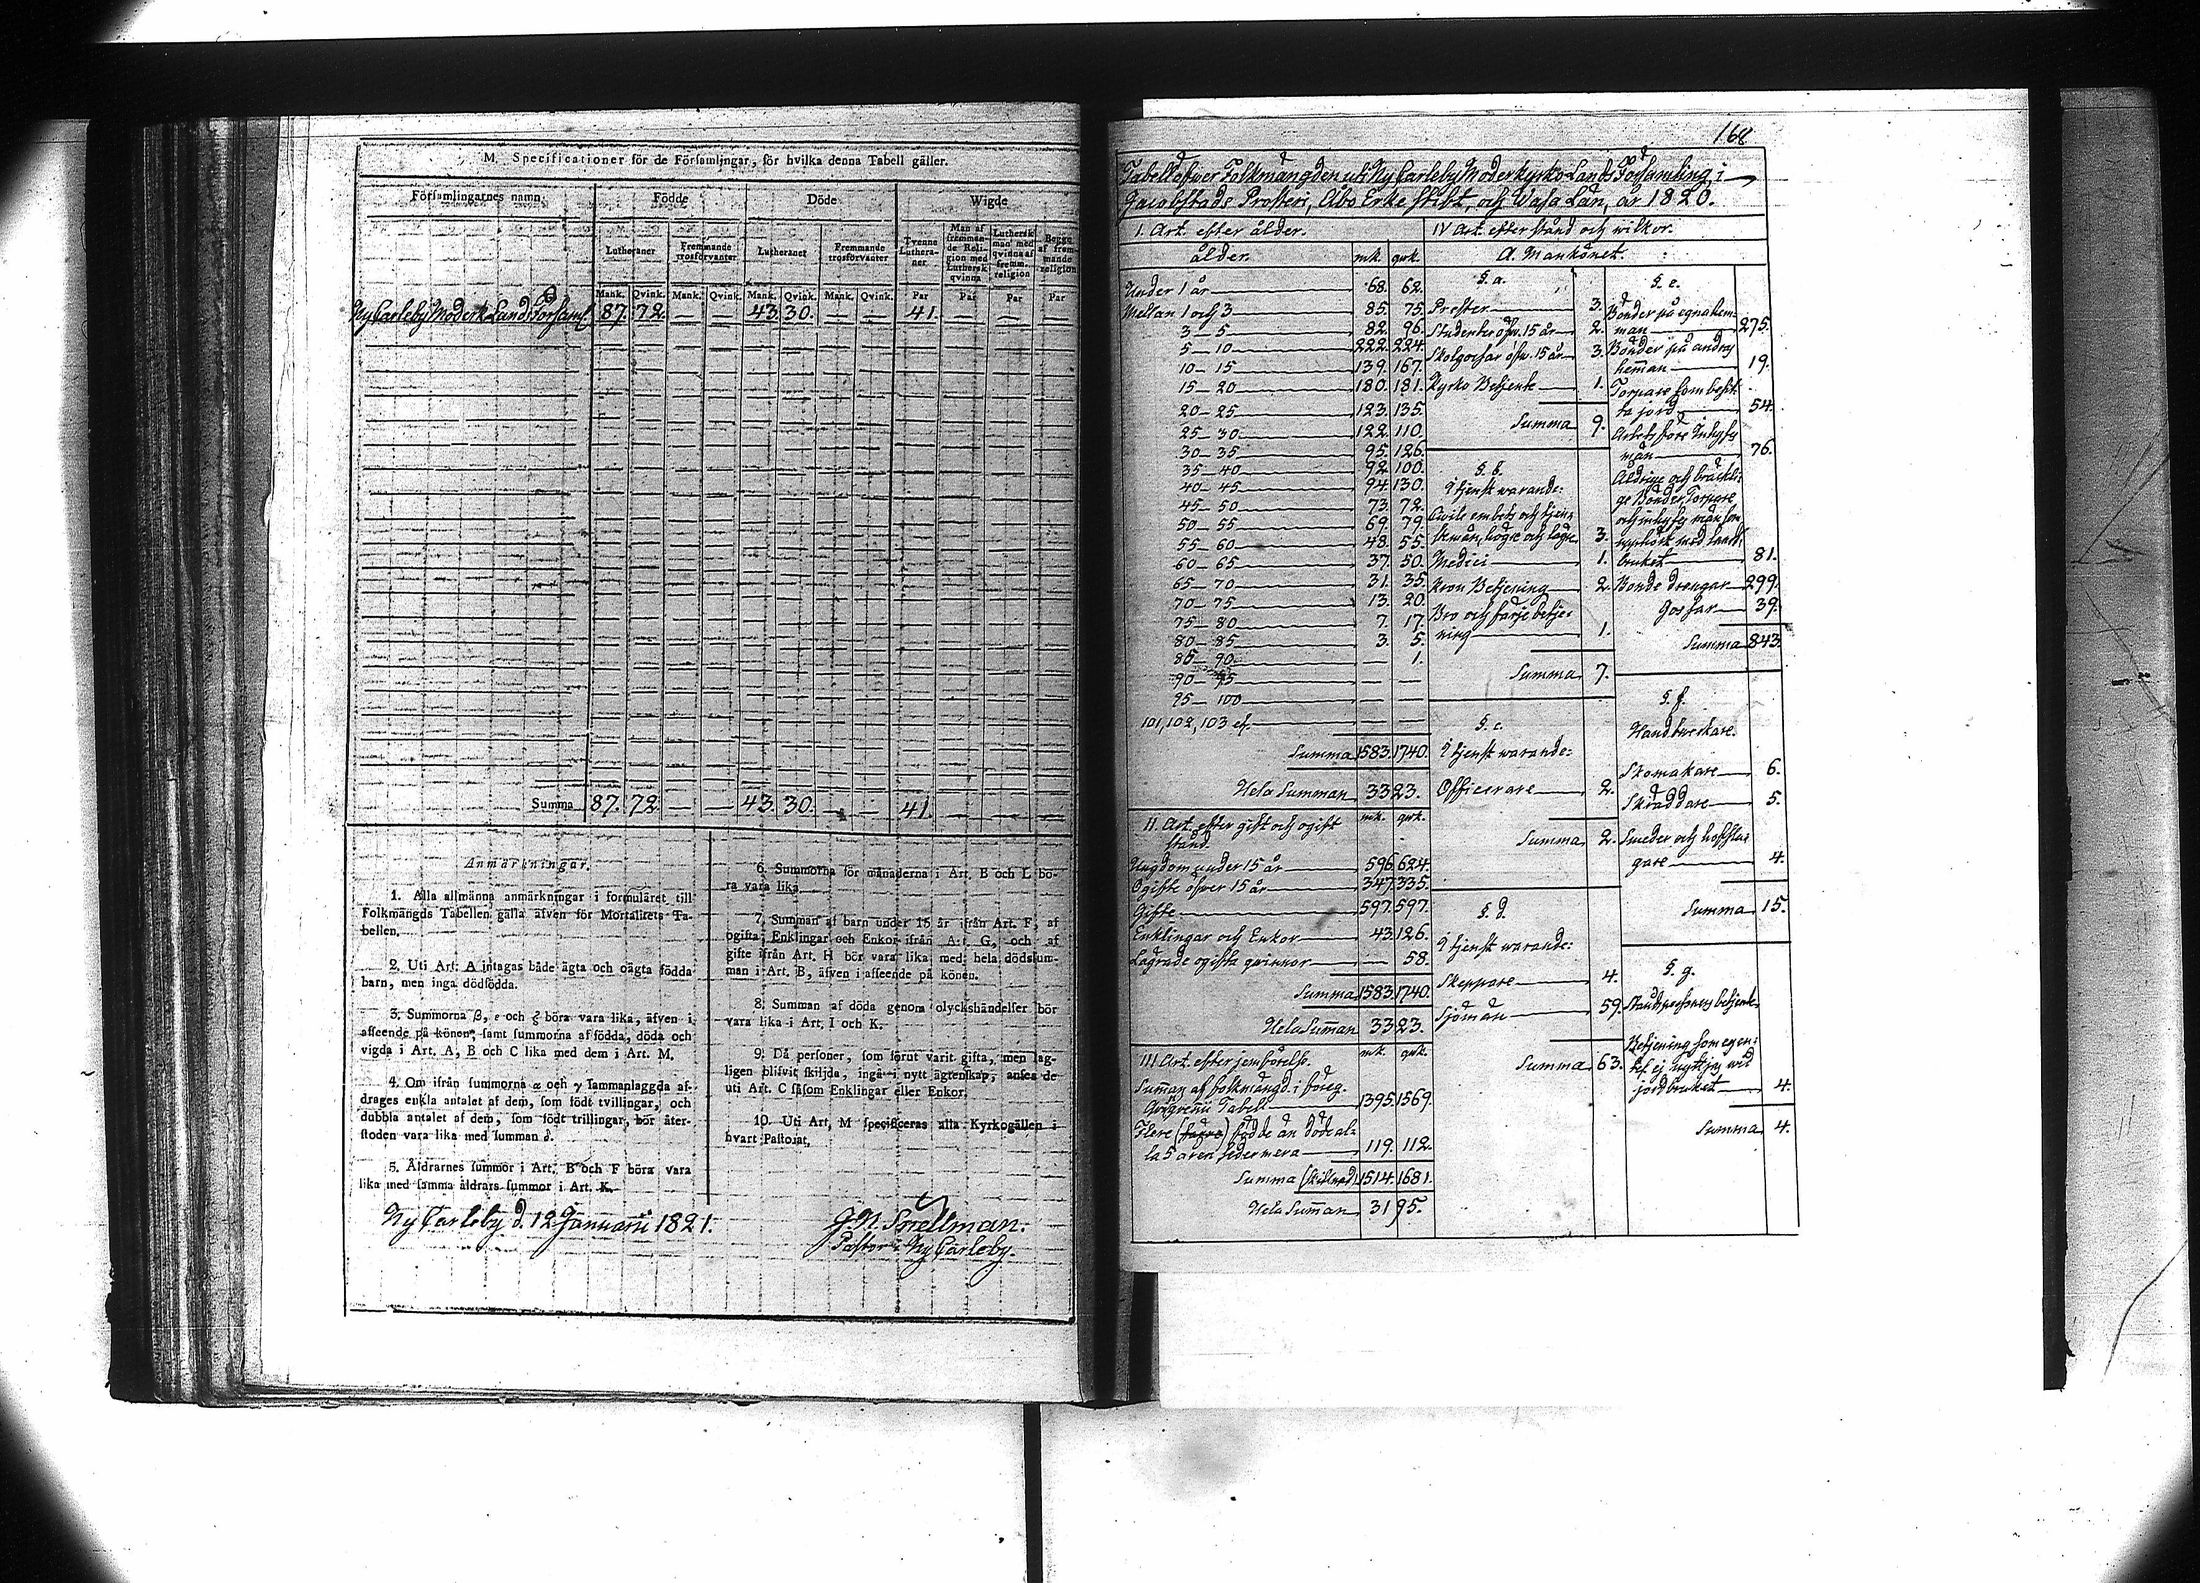 M. Specificationer för de Församlingar, för hvilka denna Tabell gäller.
Församlingarnes namn.
Födde
Döde
Wigde
Lutheraner
Fremmande trosförvanter
Lutheraner
Fremmande trosförvanter
Tvenne Lutheraner
Man af fremmande Religion med Luthersk qvinna
Luthersk man med qvinna af fremm. religion
Begge af fremmande religion
Mank. Qvink. Mank. Qvink. Mank. Qvink. Mank. Qvink. Par Par Par Par
NyCarleby Moderk. Lands Församl. 87. 72. — — 43. 30. — — 41. — — —
Summa 87. 72. — — 43. 30. — — 41. — — —
Anmärkningar.
1. Alla allmänna anmärkningar i formuläret till
Folkmängds Tabellen gälla äfven för Mortalitets Ta-
bellen.
2. Uti Art. A intagas både ägta och oägta födda
barn, men inga dödfödda.
3. Summorna β, ε och ξ böra vara lika, äfven i
afseende på könen, samt summorna af födda, döda och
vigda i Art. A, B och C lika med dem i Art. M.
4. Om ifrån summorna α och γ sammanlaggda af-
drages enkla antalet af dem, som födt tvillingar, och
dubbla antalet af dem, som födt trillingar, bör åter-
stoden vara lika med summan δ.
5. Åldrarnes summor i Art. B och F böra vara
lika med samma åldrars summor i Art. K.
6. Summorna för månaderna i Art. B och L bö-
ra vara lika.
7. Summan af barn under 15 år ifrån Art. F, af
ogifta, Enklingar och Enkor ifrån Art. G, och af
gifte ifrån Art. H bör vara lika med hela dödssum-
man i Art. B, äfven i afseende på könen.
8. Summan af döda genom olyckshändelser bör
vara lika i Art. I och K.
9. Då personer, som förut varit gifta, men lag-
ligen blifvit skiljda, ingå i nytt ägtenskap, anses de
uti Art. C såsom Enklingar eller Enkor.
10. Uti Art. M specificeras alla Kyrkogällen i
hvart Pastorat.
Ny Carleby d. 12 Januarii 1821.
J. N. Snellman.
Pastor i Ny Carleby.
168
Tabell öfwer Folkmängden uti Ny Carleby Moderkyrko Lands Församling, i
Jacobstads Prosteri, Åbo Erke Stift, och Wasa Län, år 1820.
I. Art. efter ålder.
ålder. mk. qvk.
Under 1 år 68. 62.
Mellan 1 och 3 85. 75.
3 — 5 82. 96.
5 — 10 222. 224.
10 — 15 139. 167.
15 — 20 180. 181.
20 — 25 123. 135.
25 — 30 122. 110.
30 — 35 95. 126.
35 — 40 92. 100.
40 — 45 94. 130.
45 — 50 73. 72.
50 — 55 69. 79.
55 — 60 48. 55.
60 — 65 37. 50.
65 — 70 31. 35.
70 — 75 13. 20.
75 — 80 7. 17.
80 — 85 3. 5.
85 — 90 — 1.
90 — 95 — —
95 — 100 — —
101, 102, 103 etc. — —
Summa 1583. 1740.
Hela Summan 3323.
II. Art. efter gift och ogift mk. qvk.
stånd.
Ungdom under 15 år 596. 624.
Ogifte öfver 15 år 347. 335.
Gifte 597. 597.
Enklingar och Enkor 43. 126.
Lägrade ogifta qvinnor — 58.
Summa 1583. 1740.
Hela Summan 3323.
III Art. efter jemförelse. mk. qvk.
Summan af folkmängd. i föreg.
Tabell 1395. 1569.
Flere (färre) födde än döde al-
la 5 åren sedermera 119. 112.
Summa (skillnad) 1514. 1681.
Hela Summan 3195.
IV Art. efter stånd och wilkor.
A. Mankönet.
§. a.
Prester 3.
Studenter öfw. 15 år 2.
Skolgossar öfw. 15 år 3.
Kyrko Betjente 1.
Summa 9.
§. b.
I tjenst warande:
Civile embets och tjens-
temän, högre och lägre 3.
Medici 1.
Kron Betjening 2.
Bro och färje betje-
ning 1.
Summa 7.
§. c.
I tjenst warande:
Officerare 2.
Summa 2.
§. d.
I tjenst warande:
Skeppare 4.
Sjömän 59.
Summa 63.
§. e.
Bönder på egna hem-
man 275.
Bönder på andras
hemman 19.
Torpare som besit-
ta jord 54.
Arbetsföre Inhyses
män 76.
Åldrige och bräckli-
ge Bönder, Torpare
och inhyses män som
sysslat med landt-
bruket 81.
Bonde drengar 299.
Gossar 39.
Summa 843.
§. f.
Handtwerkare.
Skomakare 6.
Skräddare 5.
Smeder och hofsla-
gare 4.
Summa 15.
§. g.
Ståndspersoners betjente.
Betjening som egen-
tel. ej nyttjas wid
jordbruket 4.
Summa 4.